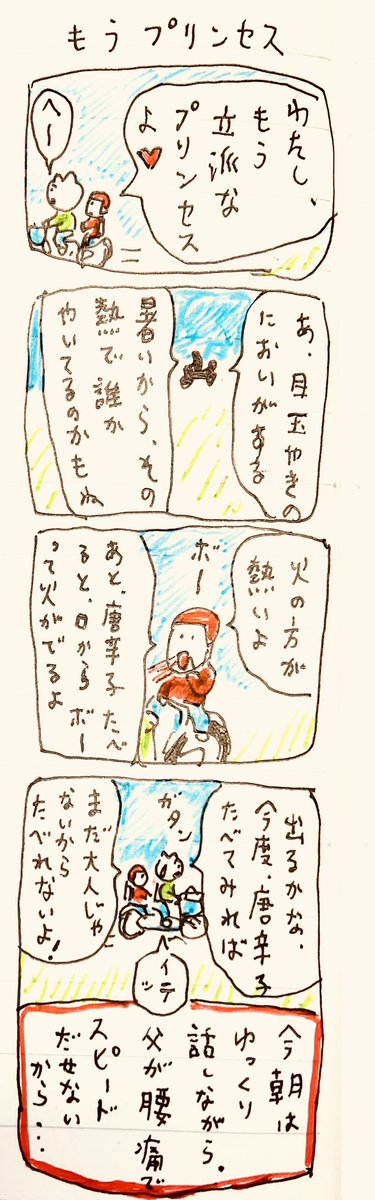 もうプリンセス
わたし、
もう
立派な
プリンセス
よ♥
へ〜
あ、目玉やきの
においがする
暑いから、その
熱で誰か
やいてるのかもね
火の方が
熱いよ
ボー
あと、唐辛子たべ
ると、口からボー
って火がでるよ
出るかな、
今度、唐辛子
たべてみれば
ガタン
まだ大人じゃ
ないから
たべれないよ!
イテッ
今朝は
ゆっくり
話しながら。
父が腰痛で
スピード
だせない
から…